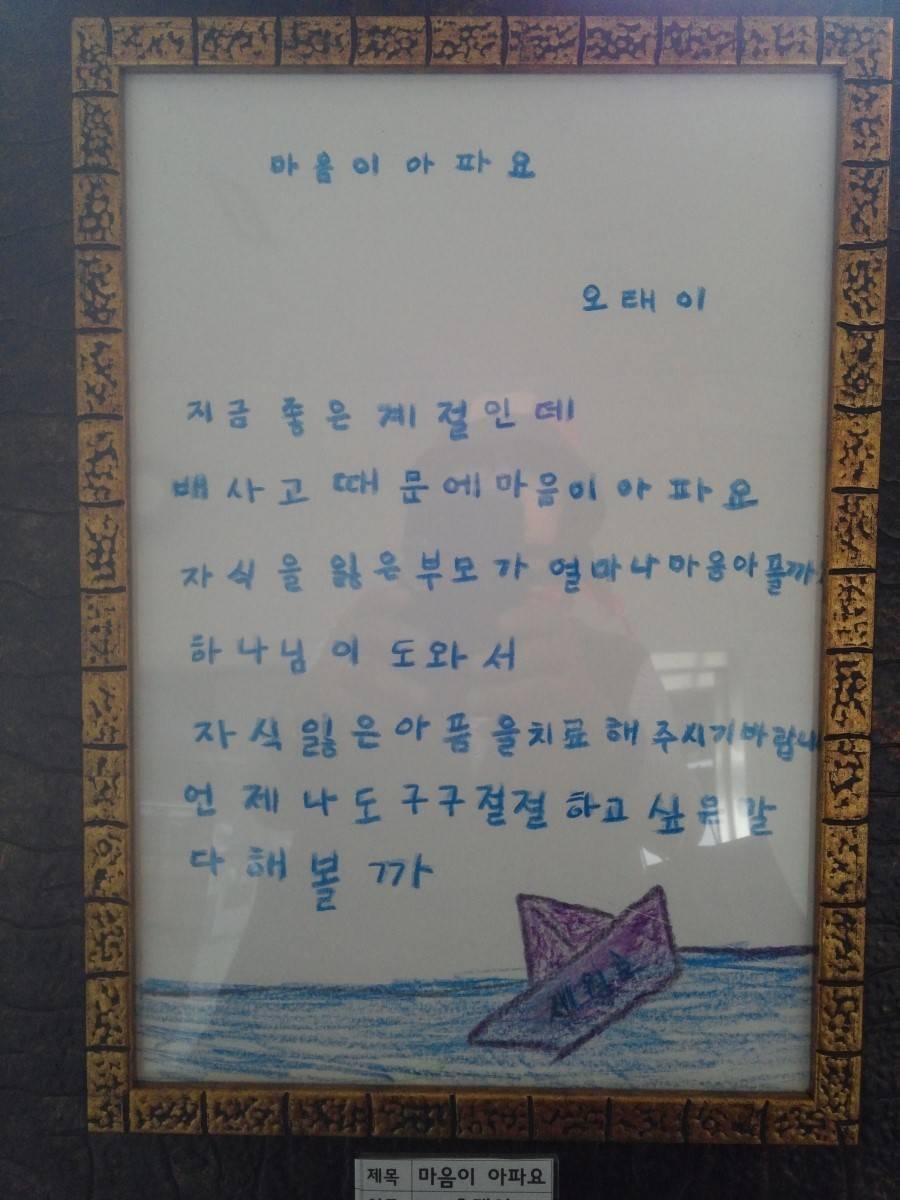 마음이 아파요
오태이
지금 좋은 계절인데
배사고 때문에 마음이 아파요
자식을 잃은 부모가 얼마나 마음아플까
하나님이 도와서
자식 잃은 아픔을 치료해 주시기바랍니
언제나도 구구절절 하고 싶은 말
다 해 볼까
세월호
제목 마음이 아파요